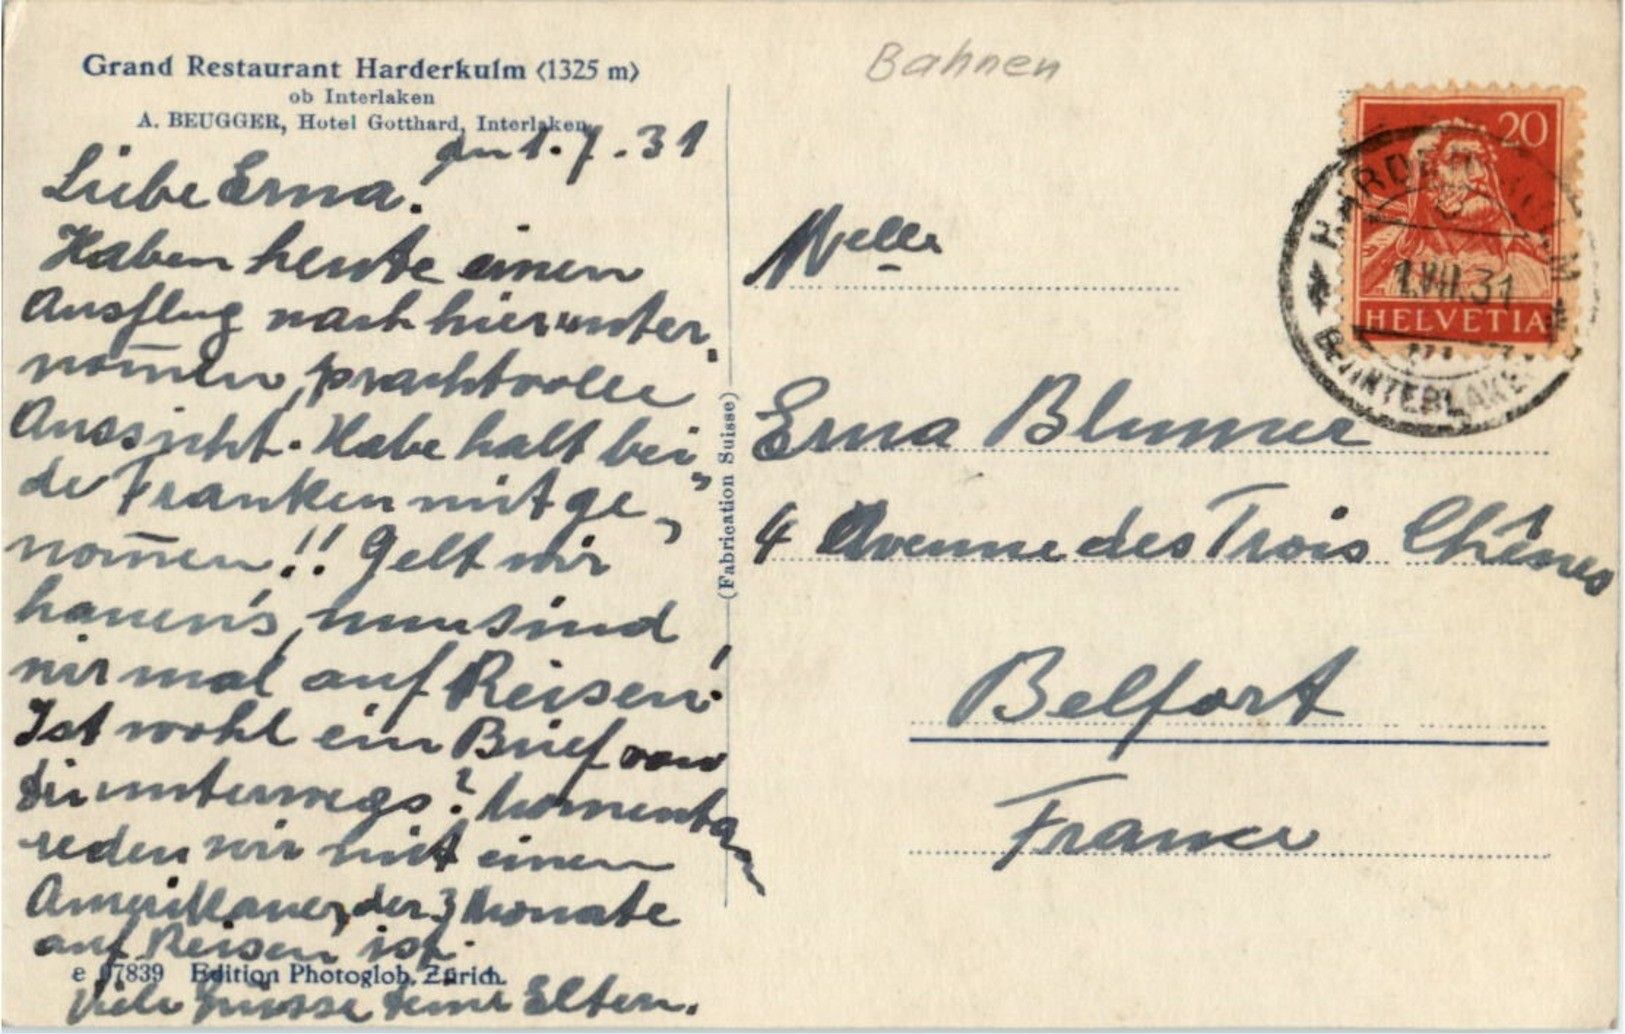 Grand Restaurant Harderkulm (1325 m)
ob Interlaken
A. BEUGGER, Hotel Gotthard, Interlaken
den 1.7.31
Liebe Erna!
Haben heute einen
Ausflug nach hier unter
nom̅en, prachtvolle
Aussicht. Habe halt bei
de Franken mit ge
nom̅en!! Gelt wir
hauen's, nun sind
wir mal auf Reisen!
Ist wohl ein Brief von
Dir unterwegs? Momentan
reden wir mit einem
Amerikaner, der 3 Monate
auf Reisen ist.
Viele Grüsse Deine Eltern.
e 07839 Edition Photoglob, Zürich.
(Fabrication Suisse)
Bahnen
20
HELVETIA
HARDERKULM
1.VII.31
INTERLAKEN
Melle
Erna Blumer
4 Avenue des Trois Chênes
Belfort
France